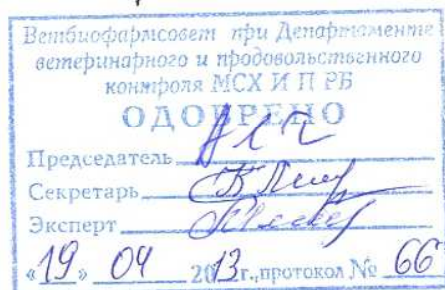 Ветбиофармсовет при Департаменте
ветеринарного и продовольственного
контроля МСХ И П РБ
ОДОБРЕНО
Председатель
Секретарь
Эксперт
«19» 04 2013г.,протокол № 66